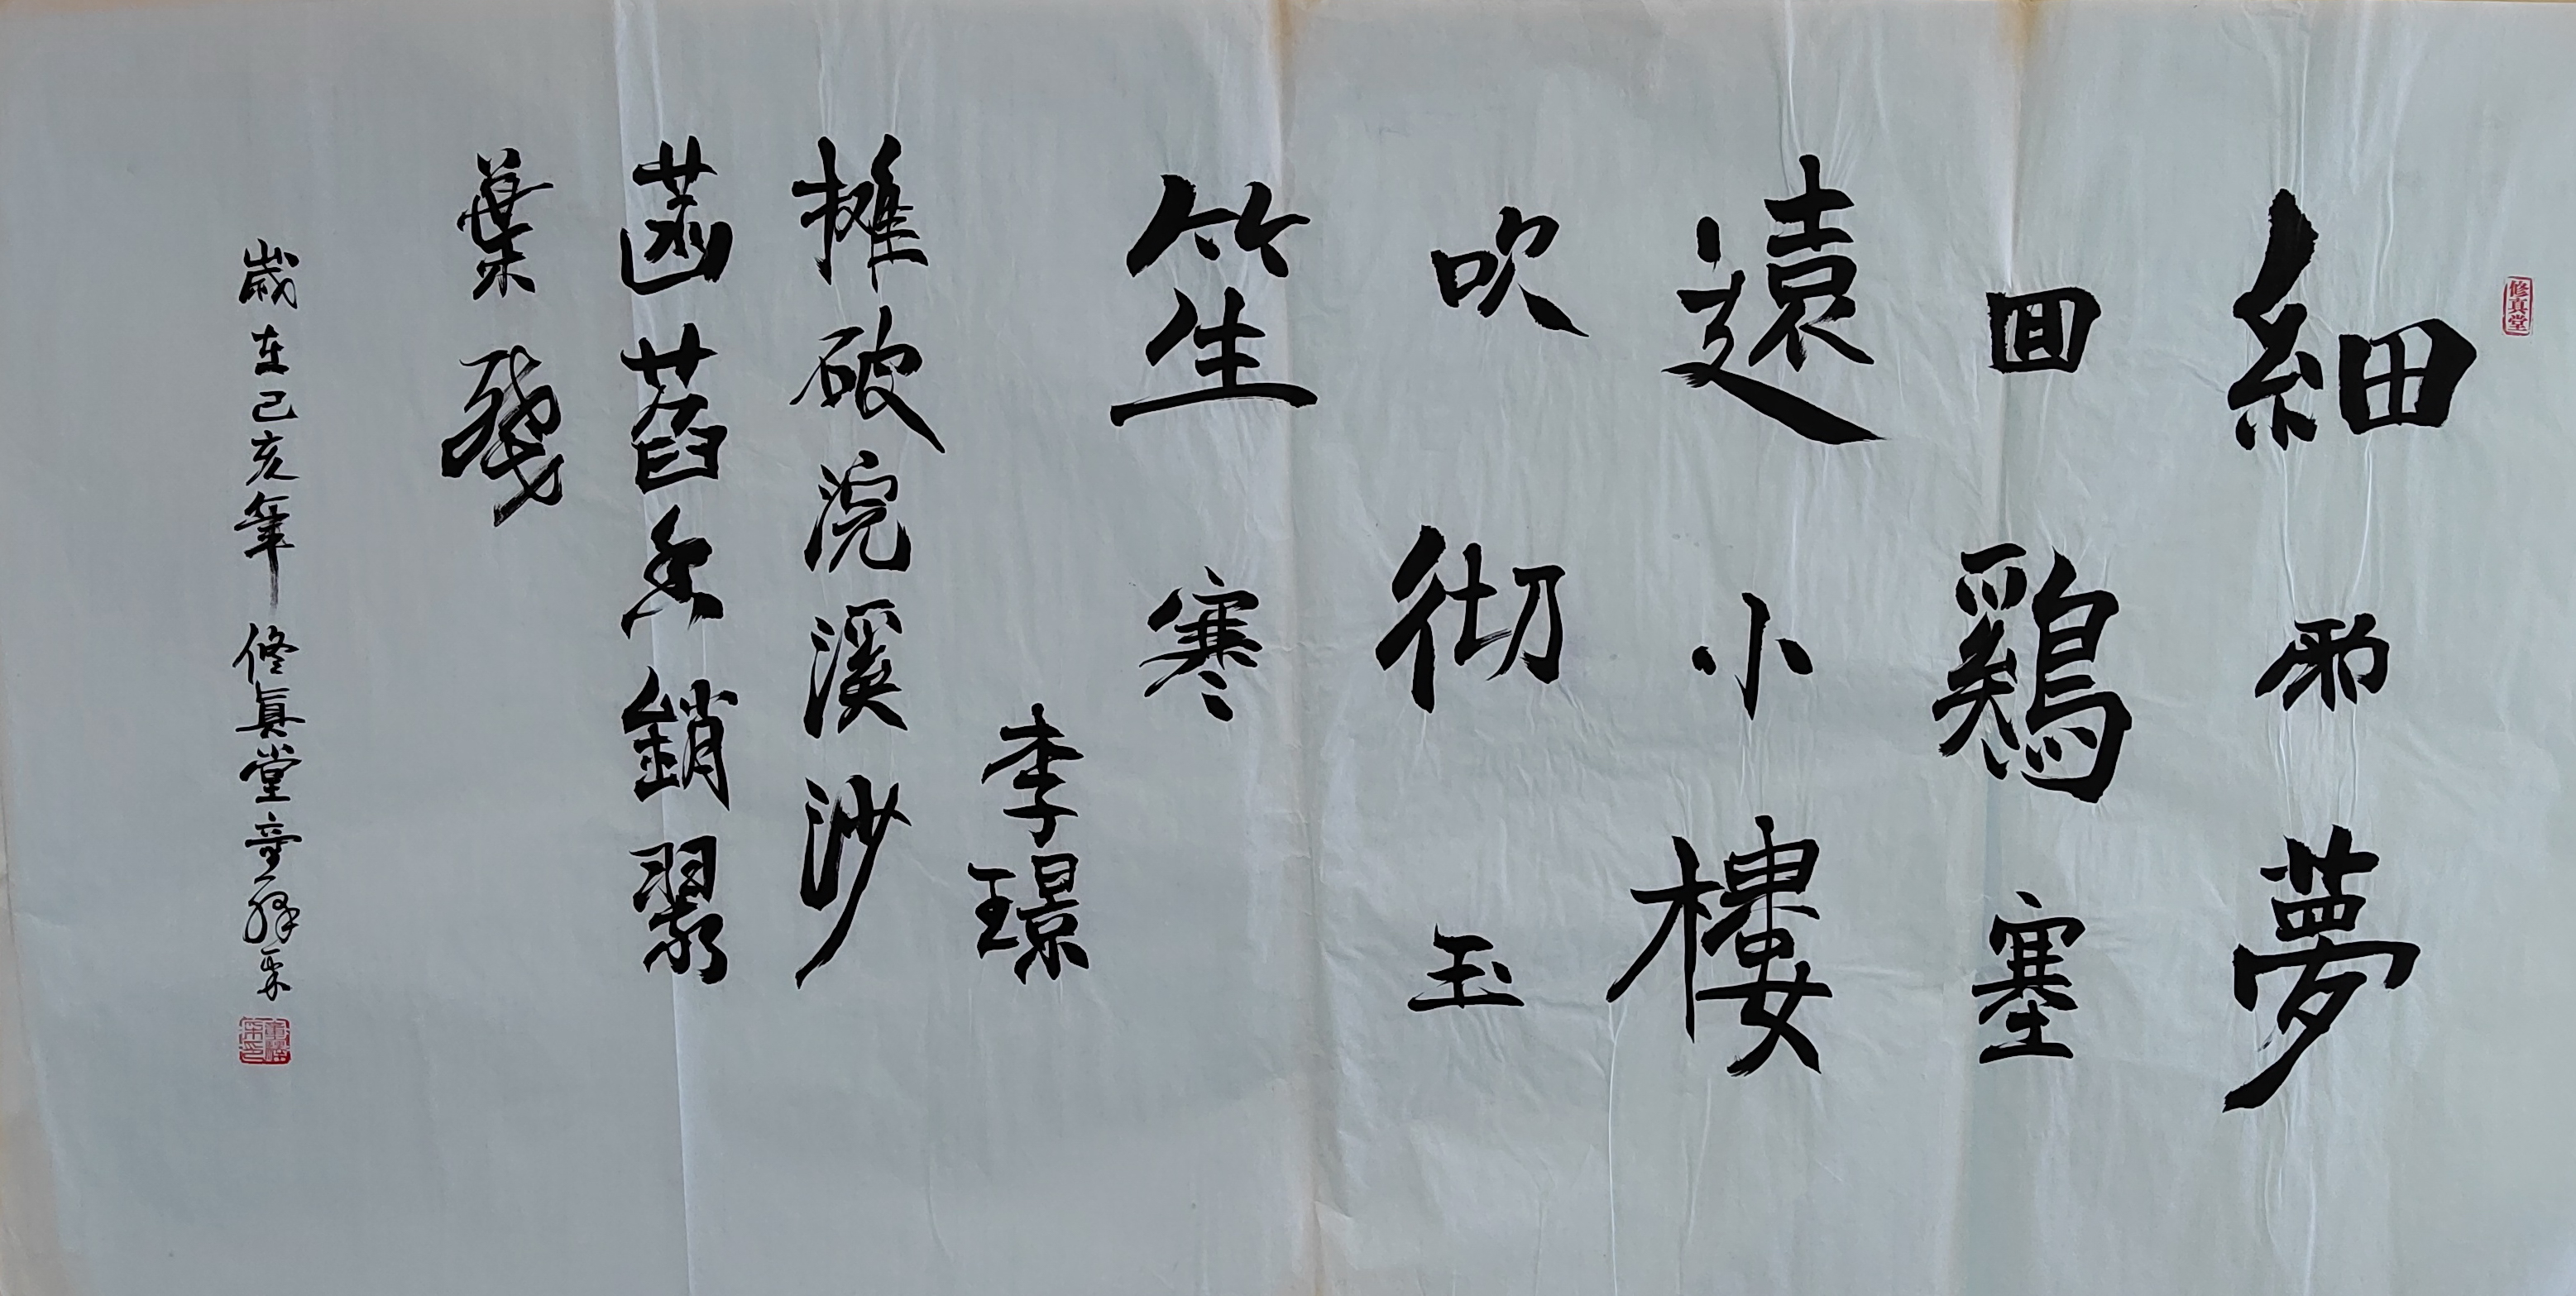 修真堂
細雨夢
回鷄塞
遠小樓
吹彻玉
笙寒
李璟
攤破浣溪沙
菡萏香銷翠
葉殘
歲在己亥年修真堂童